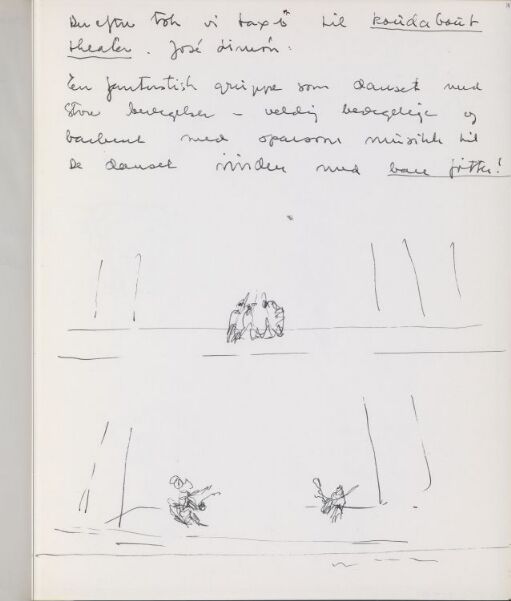 Derefter tok vi taxi til
theater. José Limón.
En fantastisk gruppe som danset med
store bevegelser – veldig bevegelige og
barbent med sparsom musikk til
De danset med bare føtter!